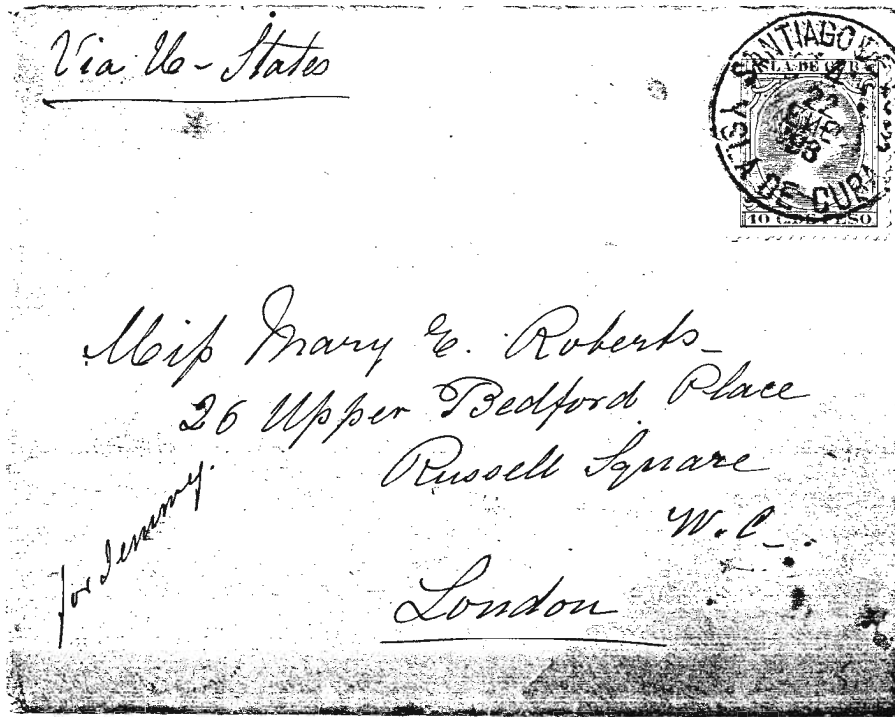 Via U-States
SANTIAGO DE
ISLA DE CUBA
22
ENE
93
ISLA DE CUBA
10 C. DE PESO
Miss Mary E. Roberts
26 Upper Bedford Place
Russell Square
W.C.
London
for Jemmy.